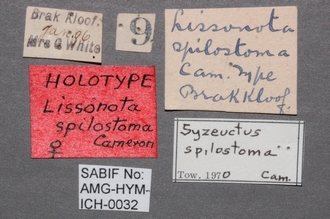 Brak Kloof.
Jan. 96
Mrs G White
9
Lissonota
spilostoma
Cam. Type
Brak Kloof.
HOLOTYPE
Lissonota
spilostoma
Cameron
♀
Syzeuctus
spilostoma
Tow. 1970 Cam.
SABIF No:
AMG-HYM-
ICH-0032